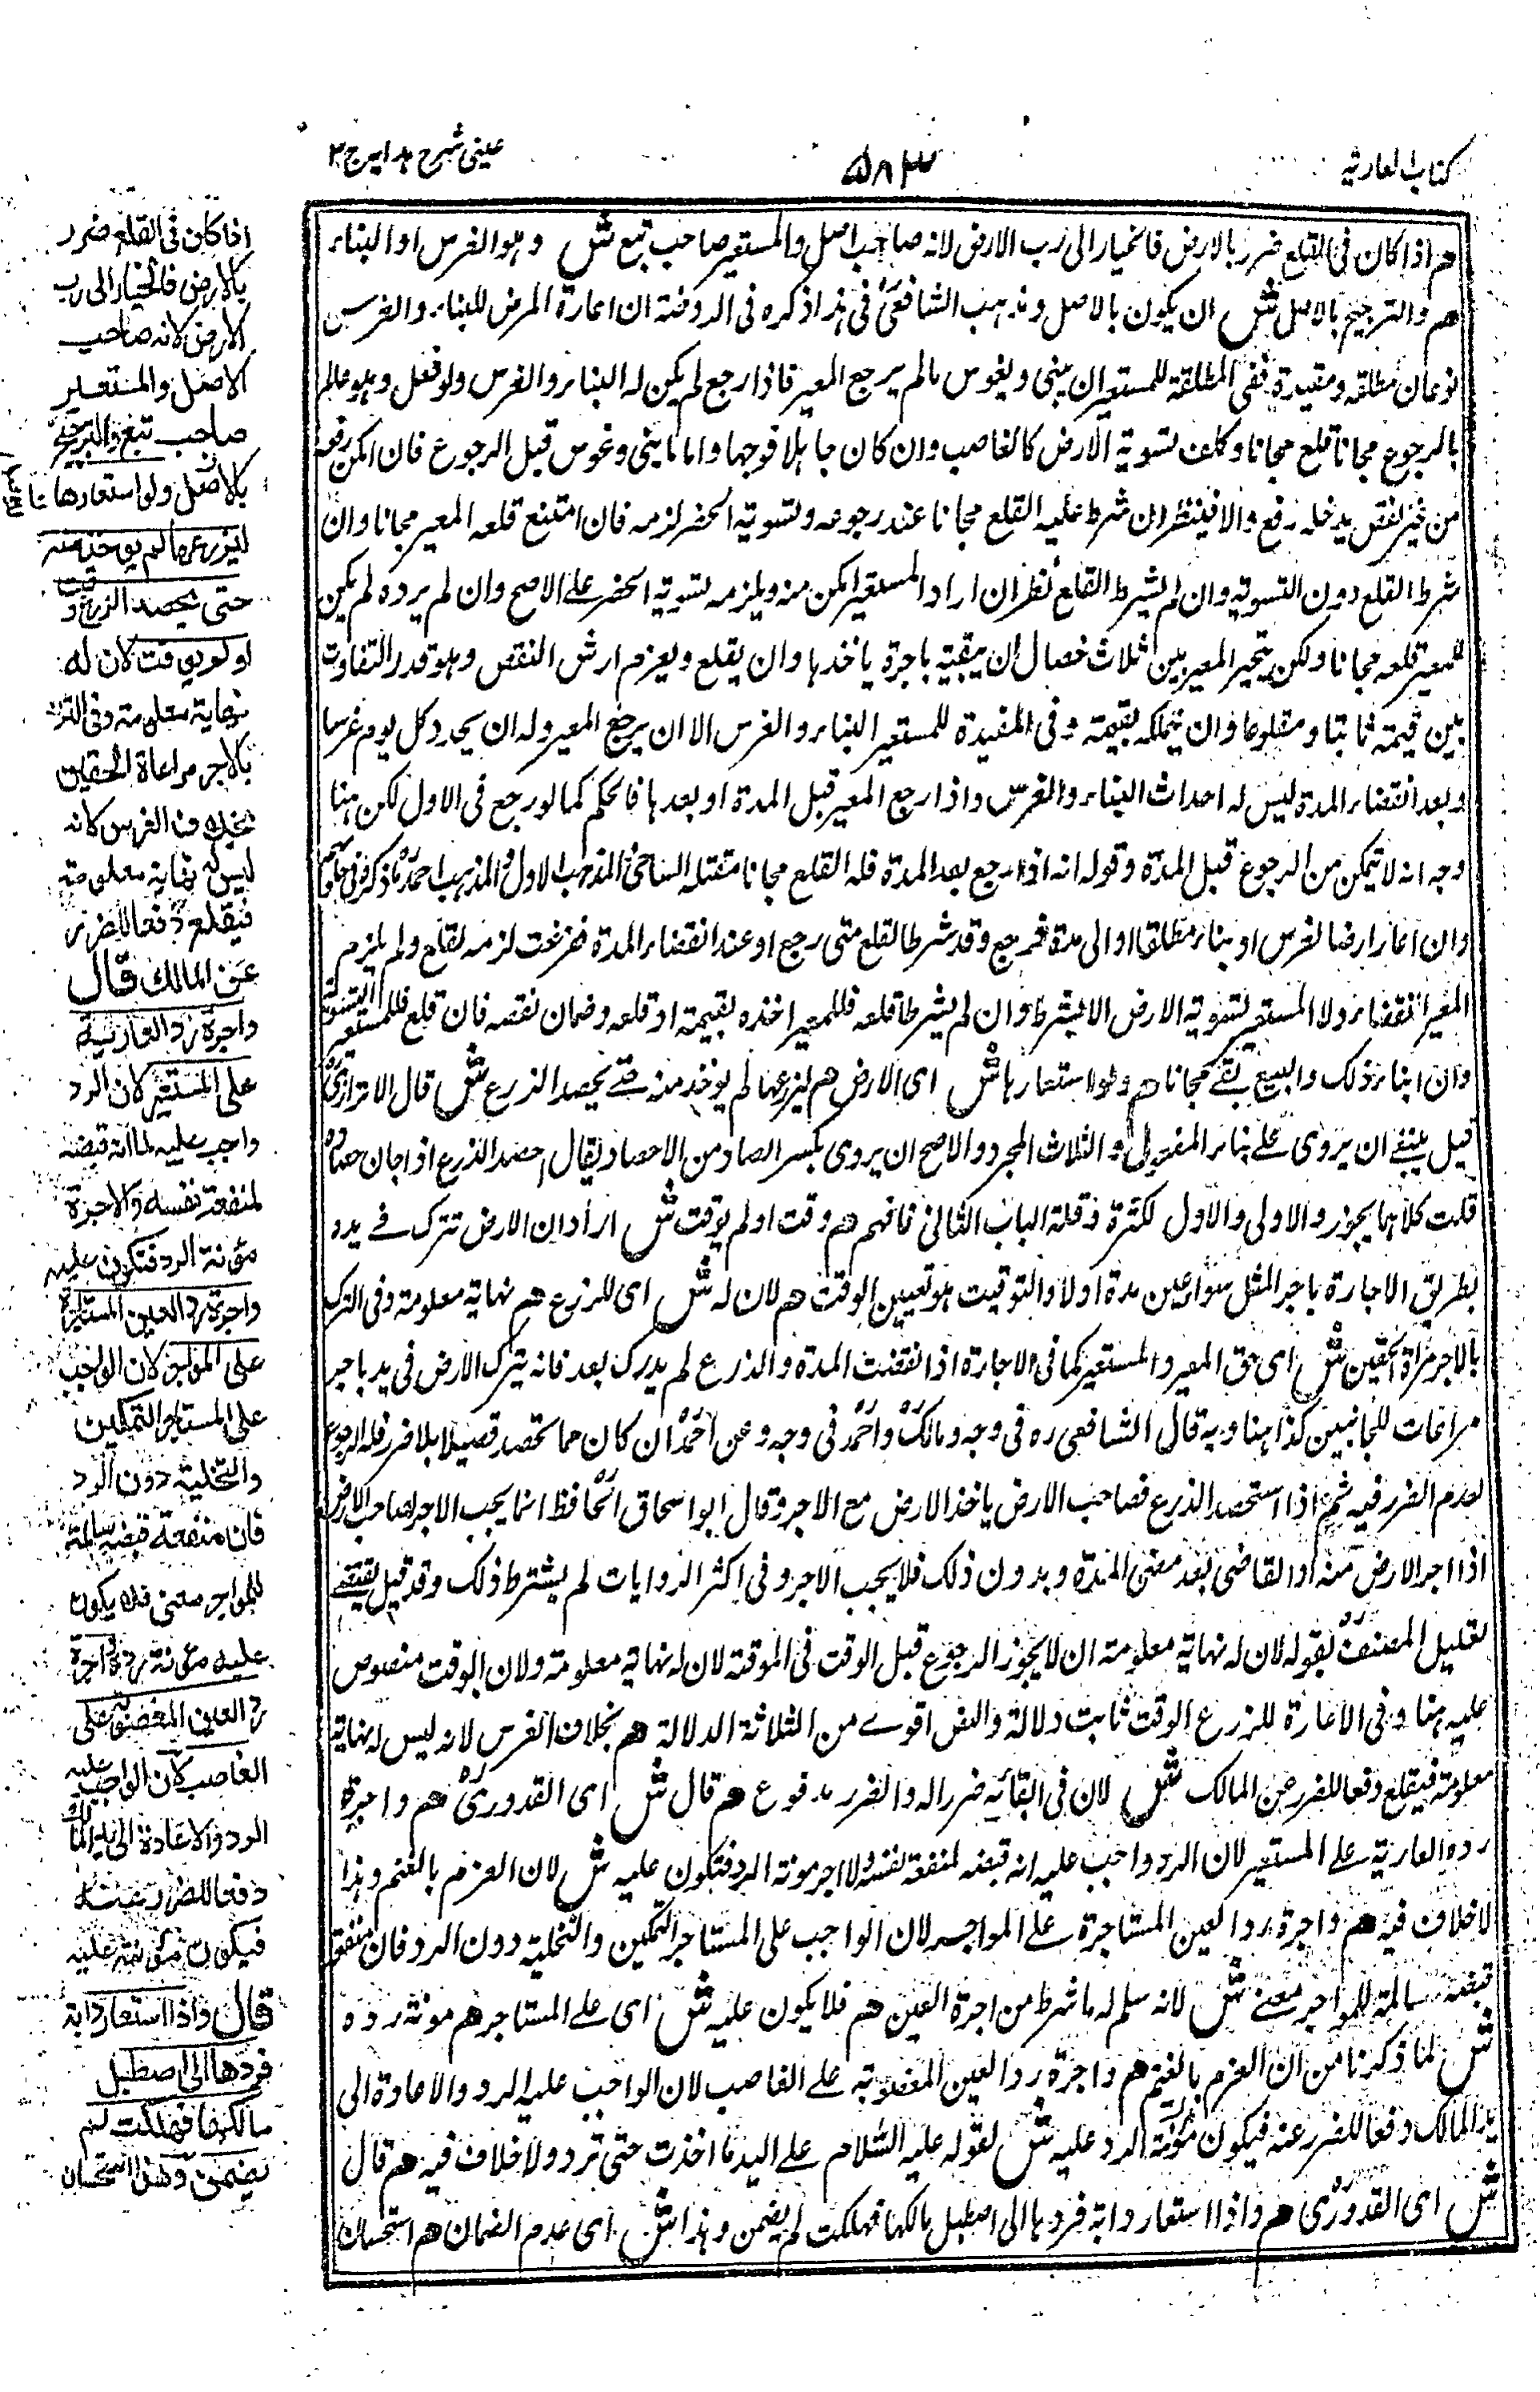 كتاب العارية
۵۸۳
عينى شرح هدايه ج ۳
هم اذا كان فى القلع ضرر بالارض فالخيار الى رب الارض لانه صاحب اصل والمستعير صاحب تبع ش وهو الغرس او البناء
هم والترجيح بالاصل ش ان يكون بالاصل ومذهب الشافعىؒ فى هذا ذكره فى الروضة ان اعارة الارض للبناء والغرس
نوعان مطلقة ومقيدة ففى المطلقة للمستعير ان يبنى ويغرس مالم يرجع المعير فاذا رجع لم يكن له البناء والغرس ولو فعل وهو عالم
بالرجوع مجانا قلع مجانا وكلف تسوية الارض كالغاصب وان كان جاهلا فوجها واما ما بنى وغرس قبل الرجوع فان امكن رفعه
من غير نقص يدخله رفع والا فينظر ان شرط عليه القلع مجانا عند رجوعه وتسوية الحفر لزمه فان امتنع قلعه المعير مجانا وان
شرط القلع دون التسوية وان لم يشرط القلع نظر ان اراد المستعير امكن منه ويلزمه تسوية الحفر على الاصح وان لم يرده لم يكن
للمعير قلعه مجانا ولكن يتخير المعير بين ثلاث خصال ان يبقيه باجرة ياخذها وان يقلع ويغرم ارش النقص وهو قدر التفاوت
بين قيمته ثابتا ومقلوعا وان يتملكه بقيمته وفى المقيدة للمستعير البناء والغرس الا ان يرجع المعير وله ان يجدد كل يوم غرسا
وبعد انقضاء المدة ليس له احداث البناء والغرس واذا رجع المعير قبل المدة او بعدها فالحكم كما لو رجع فى الاول لكن هنا
وجه انه لا يتمكن من الرجوع قبل المدة وقوله انه اذا رجع بعد المدة فله القلع مجانا المذهب الاول والمذهب احمدؒ ما ذكر فى
وان اعار ارضا لغرس او بناء مطلقا او الى مدة فمرجع وقد شرط القلع متى رجع او عند انقضاء المدة لزمه القلع ولم يلزم
المعير النقضاء ولا المستعير تسوية الارض الا بشرط وان لم يشرط قلعه فللمعير اخذه بقيمته او قلعه وضمان نقصه فان قلع فللمستعير التسوية
وان ابناء ذلك والبيع بقى مجانا هم ولو استعارها ش اى الارض هم ليزرعها لم يوخذ منه حتى يحصد الزرع ش قال الاترازىؒ
قيل ينبغى ان يروى على بناء المفعول والثلاث المجرد والاصح ان يروى بكسر الصاد من الاحصاد يقال احصد الزرع اذا حان حصاده
قلت كلاهما يجوز والاولى والاول لكثرة وقلة الباب الثانى فافهم هم وقت او لم يوقت ش اراد ان الارض تترك فى يده
بطريق الاجارة باجر المثل سواء عين مدة اولا والتوقيت هو تعيين الوقت هم لان له ش اى للزرع هم نهاية معلومة وفى الترك
بالاجر مراعاة الحقين ش اى حق المعير والمستعير كما فى الاجارة اذا انقضت المدة والزرع لم يدرك بعد فانه يترك الارض فى يده باجر
مراعات للجانبين كذا هنا وبه قال الشافعى ره فى وجه ومالكؒ واحمدؒ فى وجه وعن احمدؒ ان كان مما تحصد قصيلا بلا ضرر فله الرجوع
لعدم الضرر فيه ثم اذا استحصد الزرع فصاحب الارض ياخذ الارض مع الاجر وقال ابو اسحاق الحافظ انما يجب الاجر لصاحب الارض
اذا اجر الارض منه او القاضى بعد مضى المدة وبدون ذلك فلا يجب الاجر وفى اكثر الروايات لم يشترط ذلك وقد قيل يقتضى
تعليل المصنفؒ بقوله لان له نهاية معلومة ان لا يجوز الرجوع قبل الوقت فى الموقتة لان له نهاية معلومة ولان الوقت منصوص
عليه هنا وفى الاعارة للزرع الوقت ثابت دلالة والنص اقوى من الثلاثة الدلالة هم بخلاف الغرس لانه ليس له نهاية
معلومة فيقلع دفعا للضرر عن المالك ش لان فى ابقائه ضررا له والضرر مدفوع هم قال ش اى القدورىؒ هم واجرة
رد العارية على المستعير لان الرد واجب عليه انه قبضه لمنفعة نفسه والاجر مونة الرد فتكون عليه ش لان الغرم بالغنم وهذا
لا خلاف فيه هم واجرة رد العين المستاجرة على المواجر لان الواجب على المستاجر التمكين والتخلية دون الرد فان منفعة
قبضه سالمة للمواجر معنى ش لانه سلم له ما شرط من اجرة العين هم فلا يكون عليه ش اى على المستاجر هم مونة رده
ش لما ذكرنا من ان الغرم بالغنم هم واجرة رد العين المغصوبة على الغاصب لان الواجب عليه الرد والاعادة الى
يد المالك دفعا للضرر عنه فيكون مؤنة الرد عليه ش لقوله عليه السلام على اليد ما اخذت حتى ترد ولا خلاف فيه هم قال
ش اى القدورىؒ هم واذا استعار دابة فردها الى اصطبل مالكها فهلكت لم يضمن وهذا ش اى عدم الضمان هم استحسان
اذا كان فى القلع ضرر
بالارض فالخيار الى رب
الارض لانه صاحب
الاصل والمستعير
صاحب تبع والترجيح
بالاصل ولو استعارها
ليزرعها لم يوخذ منه
حتى يحصد الزرع وقت
او لم يوقت لان له
نهاية معلومة وفى الترك
بالاجر مراعاة الحقين
بخلاف الغرس لانه
ليس له نهاية معلومة
فيقلع دفعا للضرر
عن المالك قال
واجرة رد العارية
على المستعير لان الرد
واجب عليه لما انه قبضه
لمنفعة نفسه والاجرة
مؤنة الرد فتكون عليه
واجرة رد العين المستاجرة
على المواجر لان الواجب
على المستاجر التمكين
والتخلية دون الرد
فان منفعة قبضه سالمة
للمواجر معنى فلا يكون
عليه مؤنة رده واجرة
رد العين المغصوبة على
الغاصب لان الواجب عليه
الرد والاعادة الى يد المالك
دفعا للضرر عنه
فيكون مؤنته عليه
قال واذا استعار دابة
فردها الى اصطبل
مالكها فهلكت لم
يضمن وهذا استحسان